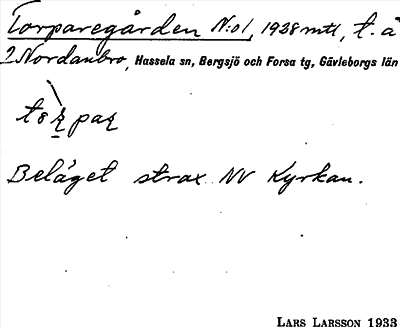 Torparegården N:o1, 1938 mtl, t. å
2 Nordanbro, Hassela sn, Bergsjö och Forsa tg, Gävleborgs län
Beläget strax NV Kyrkan.
LARS LARSSON 1933